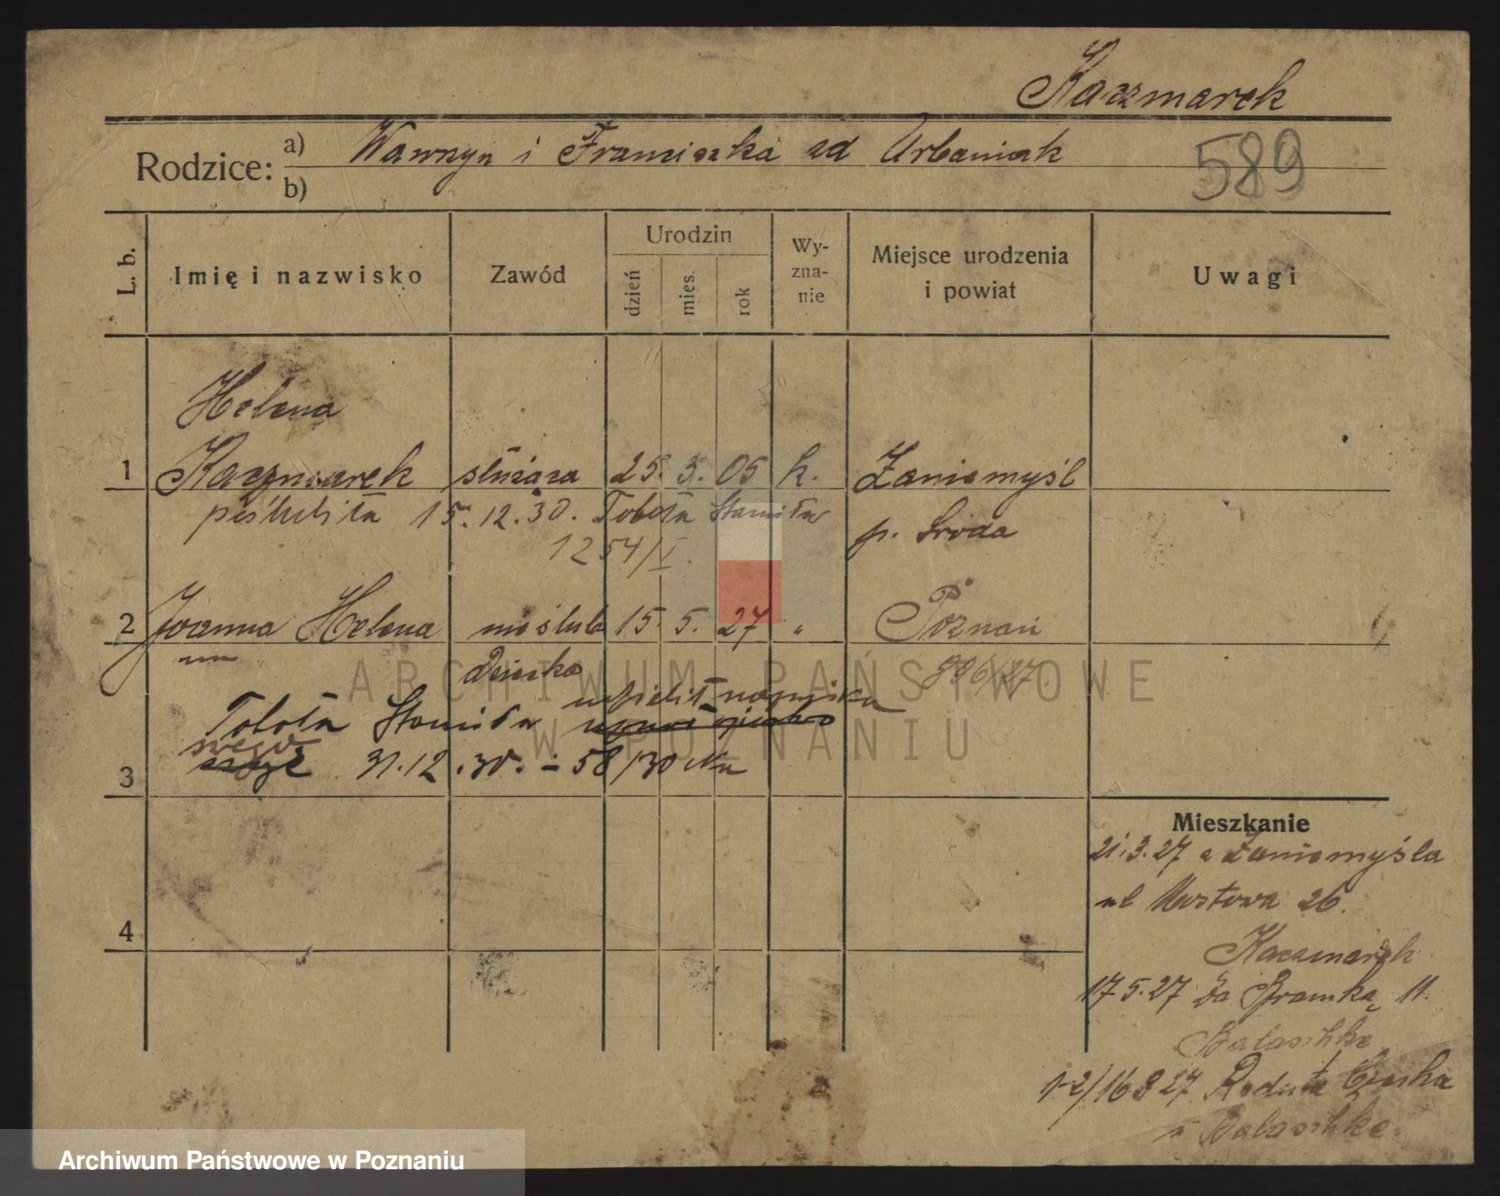 Kaczmarek
Rodzice: a) Wawrzyn i Franciszka zd Urbaniak
b)
589
L. b.
Imię i nazwisko
Zawód
Urodzin
dzień
mies.
rok
Wy-
zna-
nie
Miejsce urodzenia
i powiat
Uwagi
Helena
1 Kaczmarek służąca 25. 5. 05 k. Zaniemyśl
poślubiła 15.12.30. Toboła Stanisław p. Środa
1254/I
2 Joanna Helena nieślub 15. 5. 27 " Poznań
dziecko 896/27.
udzielił nazwiska
Toboła Stanisław
swego
3 31.12.30. – 58/30
4
Mieszkanie
21.3.27 z Zaniemyśla
ul Mostowa 26.
Kaczmarek
17.5.27 Za Bramką 11.
1-2/16 8 27 Reduta
ARCHIWUM PAŃSTWOWE
W POZNANIU
Archiwum Państwowe w Poznaniu